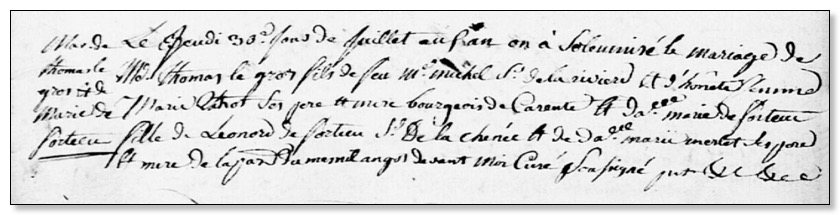 Mar. de Le Jeudi 30e Jour de Juillet au fran on à Solemnisé le mariage de
thomas le Me Thomas le gros fils de feu Me michel Sr. de la riviere et d'honete femme
gros et de
Marie de Marie Ses pere et mere bourgeois de Carente et da elle marie de Sortecu
Sortecu fille de Leonord de Sortecu Sr. De la chenée et de da elle marie merlet Ses pere
et mere de la par. du mesnil angot devant Moi Curé Soussigné &c &c